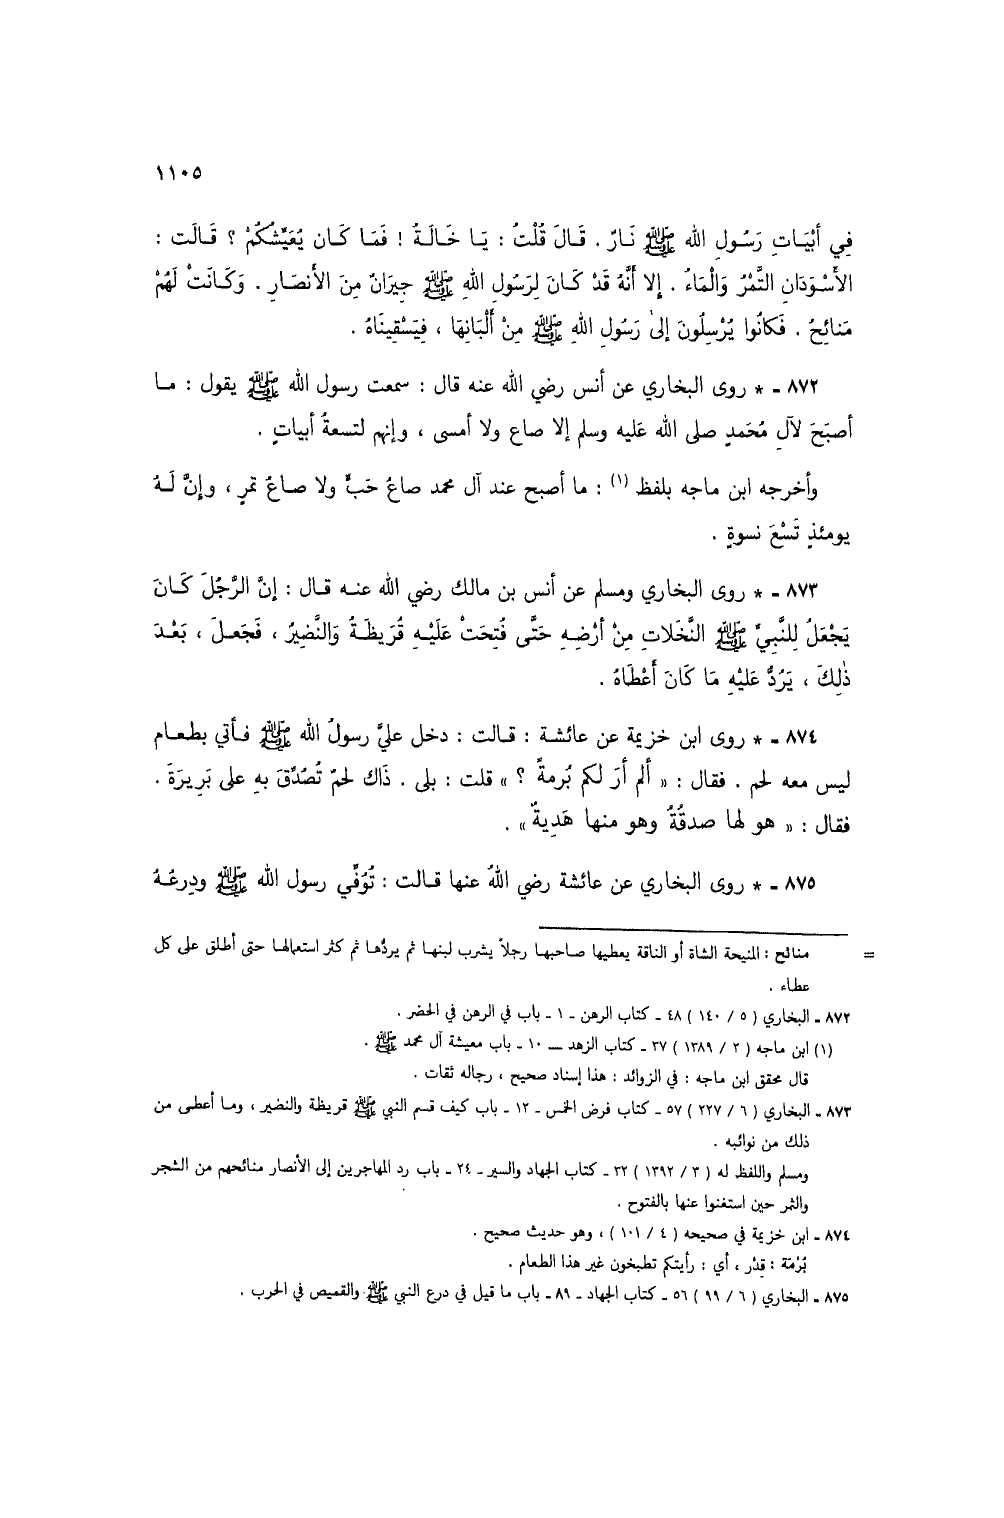 ١١٠٥
فِي أَبْيَاتِ رَسُولِ اللهِ ﷺ نَارٌ . قَالَ قُلْتُ : يَا خَالَةُ ! فَمَا كَان يُعَيِّشُكُمْ ؟ قَالَت :
الأَسْوَدَانِ التَّمْرُ وَالْمَاءُ . إِلا أَنَّهُ قَدْ كَانَ لِرَسُولِ اللهِ ﷺ جِيرَانٌ مِنَ الأَنصَارِ . وَكَانَتْ لَهُمْ
مَنائِحُ . فَكَانُوا يُرْسِلُونَ إِلىٰ رَسُولِ اللهِ ﷺ مِنْ أَلْبَانِهَا ، فَيَسْقِينَاهُ .
٨٧٢ - * روى البخاري عن أنس رضي الله عنه قال : سمعت رسول الله ﷺ يقول : ما
أصبَحَ لآلِ مُحَمدٍ صلى الله عَليه وسلم إلا صاع ولا أمسى ، وإنهم لتسعةُ أبياتٍ .
وأخرجه ابن ماجه بلفظ (١) : ما أصبح عند آل محمد صاعُ حَبٍّ ولا صاعُ تمرٍ ، وإنَّ لَهُ
يومئذٍ تَسْعَ نسوةٍ .
٨٧٣ - * روى البخاري ومسلم عن أنس بن مالك رضي الله عنه قال : إنَّ الرَّجُلَ كَانَ
يَجْعَلُ لِلنَّبِيِّ ﷺ النَّخَلاتِ مِنْ أَرْضِهِ حَتَّى فُتِحَتْ عَلَيْهِ قُرَيظَةُ وَالنَّضِيرُ ، فَجَعلَ ، بَعْدَ
ذٰلِكَ ، يَرُدُّ عَليْهِ مَا كَانَ أَعْطَاهُ .
٨٧٤ - * روى ابن خزيمة عن عائشة : قالت : دخل عليَّ رسولُ الله ﷺ فأتي بطعام
ليس معه لحم . فقال : « ألم أرَ لكم بُرمةً ؟ » قلت : بلى . ذَاك لحمٌ تُصُدِّقَ بهِ على بَرِيرَةَ .
فقال : « هو لها صدقُةٌ وهو منها هَدِيةٌ » .
٨٧٥ - * روى البخاري عن عائشة رضي اللهُ عنها قالت : تُوُفِّي رسول الله ﷺ ودِرعُهُ
= منائح : المنيحة الشاة أو الناقة يعطيها صاحبها رجلاً يشرب لبنها ثم يردُّها ثم كثر استعمالها حتى أطلق على كل
عطاء .
٨٧٢ - البخاري ( ٥ / ١٤٠ ) ٤٨ - كتاب الرهن - ١ - باب في الرهن في الحضر .
(١) ابن ماجه ( ٢ / ١٣٨٩ ) ٣٧ - كتاب الزهد — ١٠ - باب معيشة آل محمد ﷺ .
قال محقق ابن ماجه : في الزوائد : هذا إسناد صحيح ، رجاله ثقات .
٨٧٣ - البخاري ( ٦ / ٢٢٧ ) ٥٧ - كتاب فرض الخمس - ١٢ - باب كيف قسم النبي ﷺ قريظة والنضير ، وما أعطى من
ذلك من نوائبه .
ومسلم واللفظ له ( ٣ / ١٣٩٢ ) ٣٢ - كتاب الجهاد والسير - ٢٤ - باب رد المهاجرين إلى الأنصار منائحهم من الشجر
والثمر حين استغنوا عنها بالفتوح .
٨٧٤ - ابن خزيمة في صحيحه ( ٤ / ١٠١ ) ، وهو حديث صحيح .
بُرْمَة : قِدْر ، أي : رأيتكم تطبخون غير هذا الطعام .
٨٧٥ - البخاري ( ٦ / ٩٩ ) ٥٦ - كتاب الجهاد - ٨٩ - باب ما قيل في درع النبي ﷺ والقميص في الحرب .